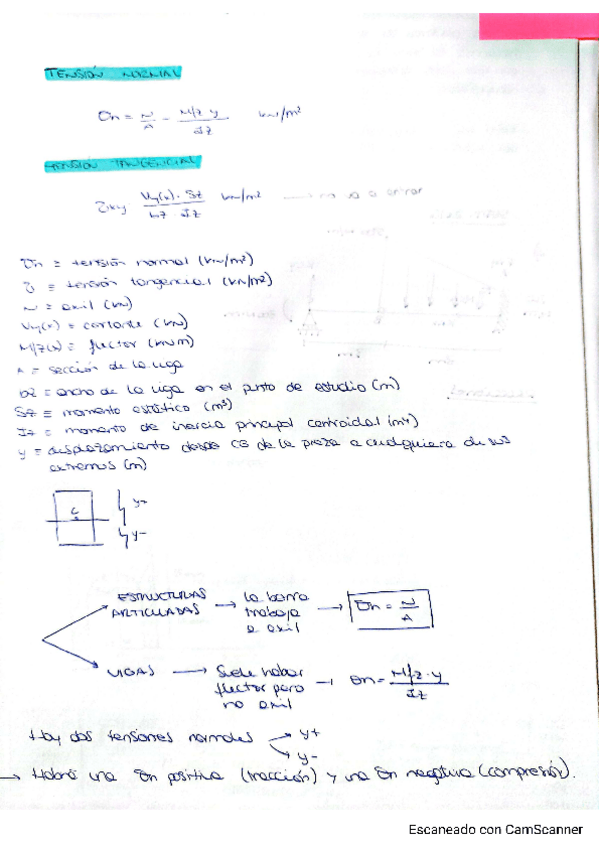 TENSIÓN NORMAL
σn = N/A - M/z y / Iz kN/m²
TENSIÓN TANGENCIAL
τxy Vy(x) · Sz / bz · Iz kN/m² → no va a entrar
σn ≡ tensión normal (kN/m²)
τ ≡ tensión tangencial (kN/m²)
N ≡ axil (kN)
Vy(x) = cortante (kN)
M/z(x) = flector (kN·m)
A = sección de la viga
bz = ancho de la viga en el punto de estudio (m)
Sz ≡ momento estático (m³)
Iz = momento de inercia principal centroidal (m⁴)
y = desplazamiento desde CG de la pieza a cualquiera de sus
extremos (m)
G y+
y-
ESTRUCTURAS ARTICULADAS → la barra trabaja a axil → σn = N/A
VIGAS → Suele haber flector pero no axil → σn = M/z · y / Iz
Hay dos tensiones normales y+
y-
→ Habrá una σn positiva (tracción) y una σn negativa (compresión).
Escaneado con CamScanner